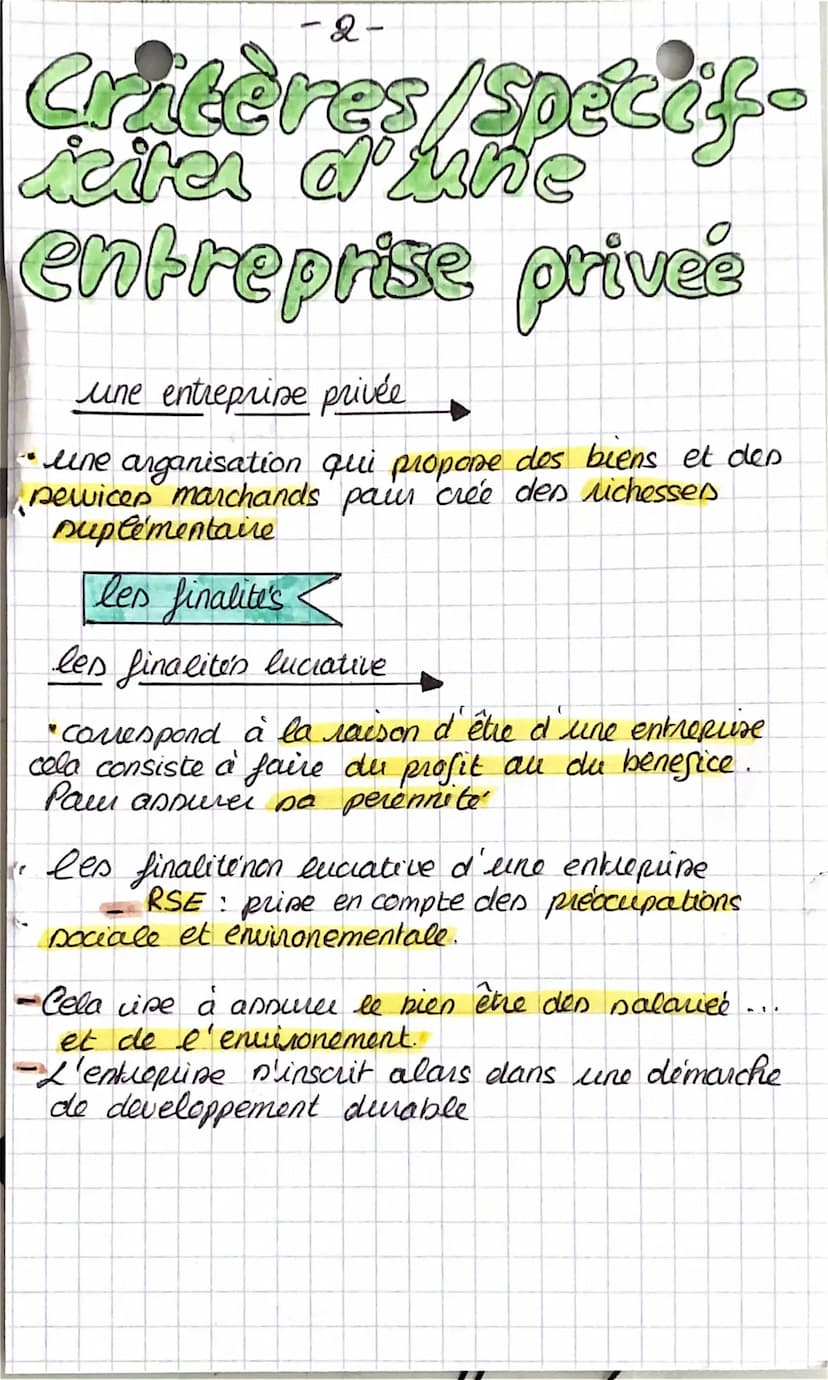 -2-
Critères/spécif-
icités d'une
entreprise privée
une entreprise privée
• une organisation qui propose des biens et des
services marchands pour crée des richesses
suplémentaire
les finalités
les finalités lucrative
• correspond à la raison d'être d'une entreprise
cela consiste à faire du profit ou du bénéfice.
Pour assurer sa pérennité
• les finalité non lucrative d'une entreprise
- RSE : prise en compte des préoccupations
sociale et environementale.
- Cela vise à assurer le bien être des salariés ...
et de l'environement.
- L'entreprise s'inscrit alors dans une démarche
de développement durable